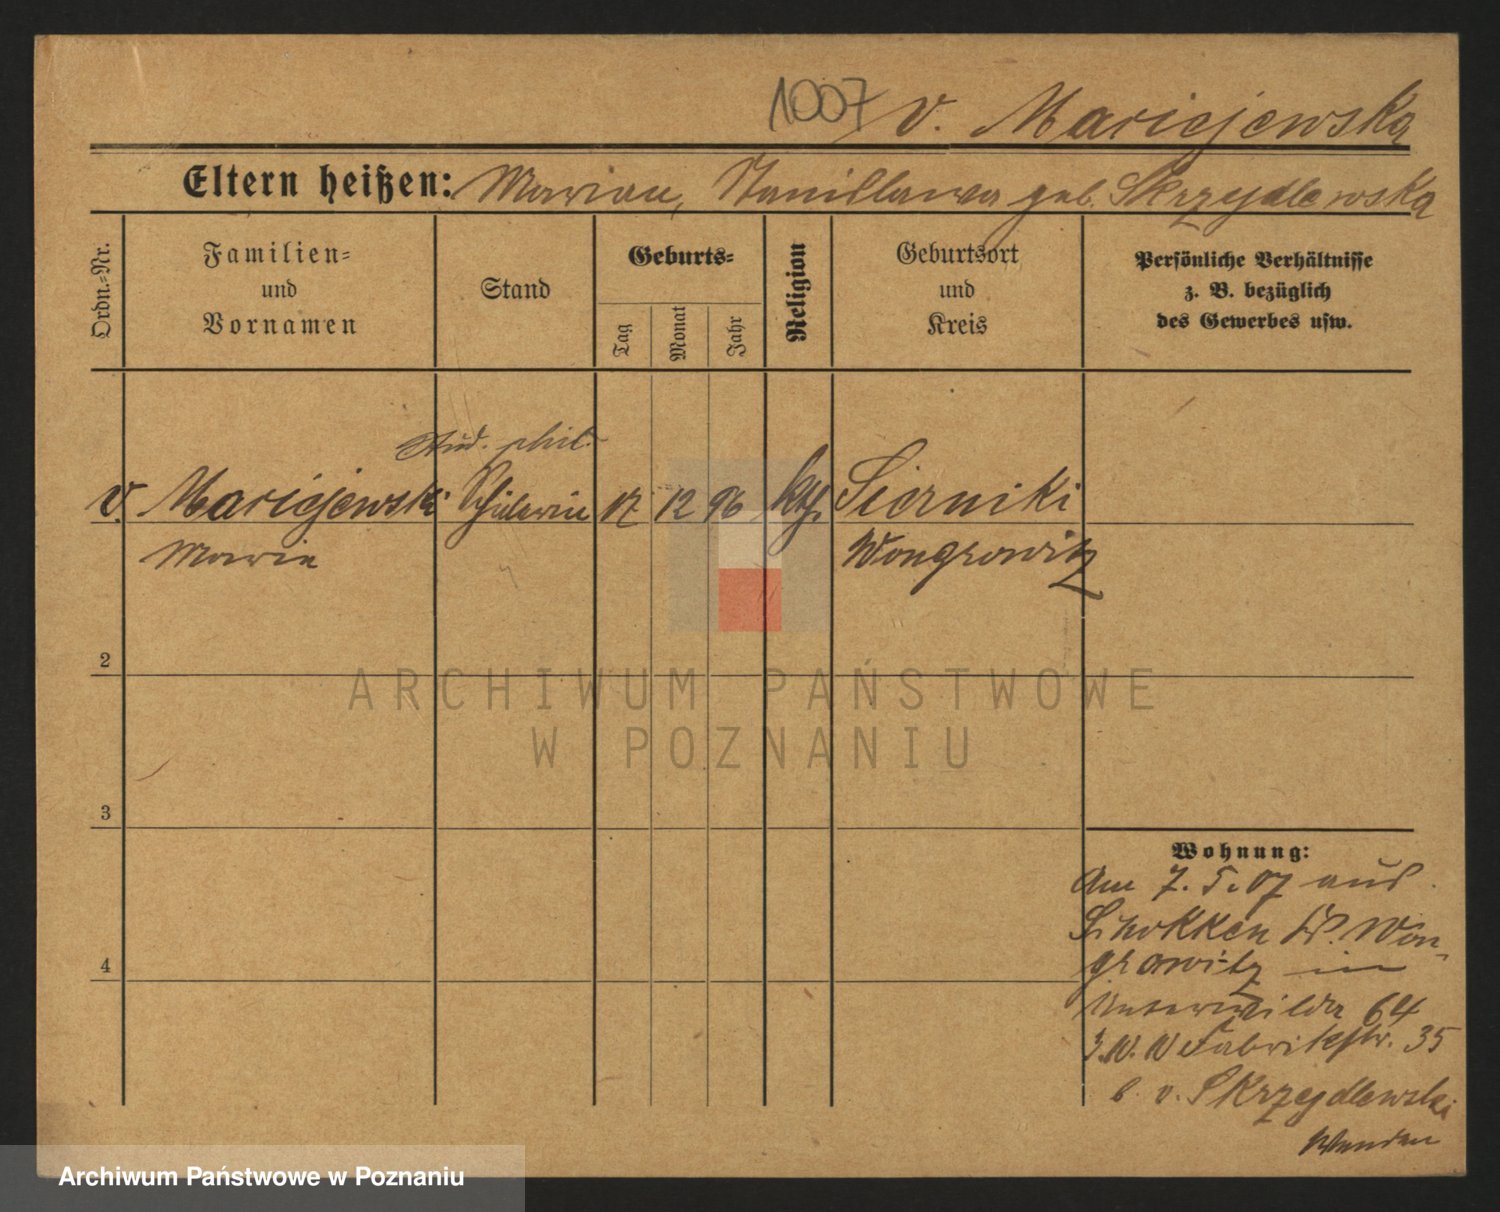 1007 v. Mariejewska
Eltern heißen: Marian, Stanislawa geb. Skrzydlewska
Ordn.-Nr.
Familien-
und
Vornamen
Stand
Geburts-
Tag
Monat
Jahr
Religion
Geburtsort
und
Kreis
Persönliche Verhältnisse
z. B. bezüglich
des Gewerbes usw.
stud. phil.
v. Mariejewski Schülerin 17 12 96 kth. Sierniki
Marie Wongrowitz
2
ARCHIWUM PAŃSTWOWE
W POZNANIU
3
Wohnung:
Am 7. 5. 07 aus
Schokken Kr. Won-
4
growitz in
Unterwilda 64
Fabrikstr. 35
b. v. Skrzydlewski
Wenden
Archiwum Państwowe w Poznaniu